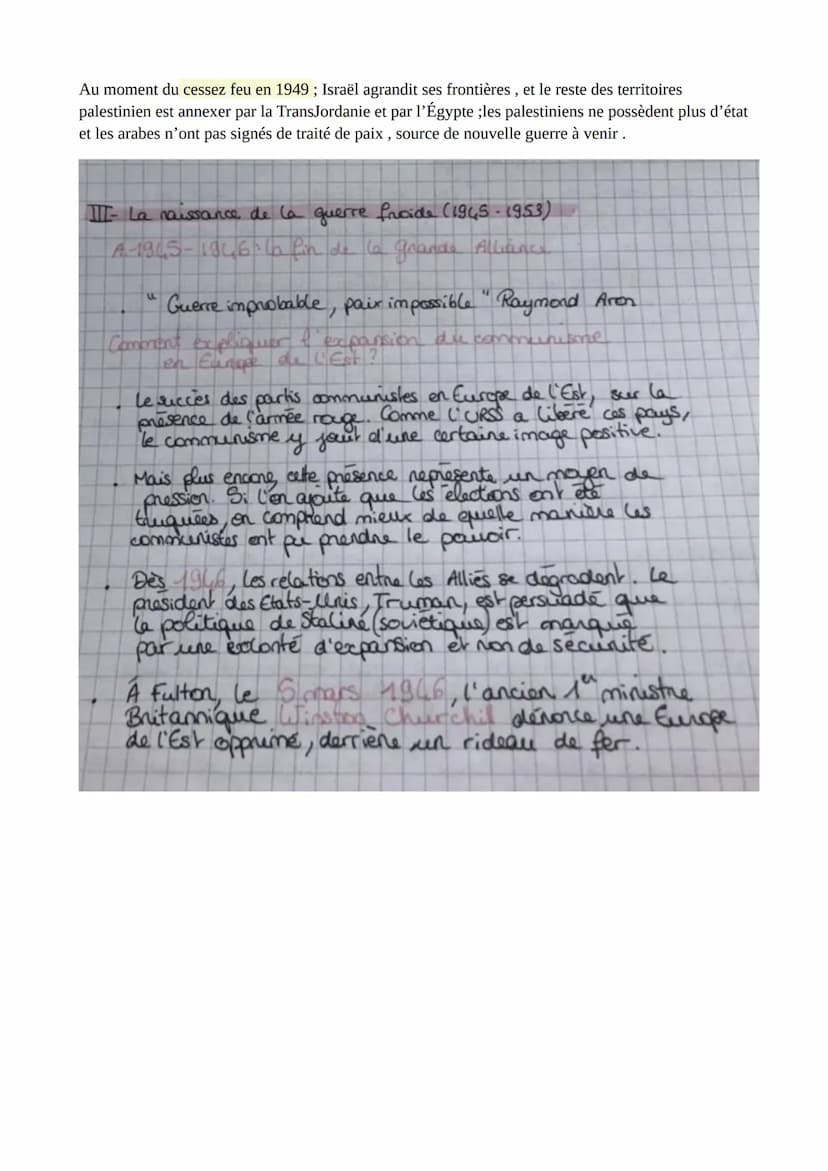 Au moment du cessez feu en 1949 ; Israël agrandit ses frontières , et le reste des territoires
palestinien est annexer par la TransJordanie et par l’Égypte ;les palestiniens ne possèdent plus d’état
et les arabes n’ont pas signés de traité de paix , source de nouvelle guerre à venir .
III- La naissance de la guerre froide (1945 - 1953)
A-1945-1946 : la fin de la grande Alliance
. " Guerre improbable, paix impossible " Raymond Aron
Comment expliquer l'expansion du communisme
en Europe de l'Est ?
. Le succès des partis communistes en Europe de l'Est, sur la
présence de l'armée rouge. Comme l'URSS a libéré ces pays,
le communisme y jouit d'une certaine image positive.
. Mais plus encore, cette présence représente un moyen de
pression. Si l'on ajoute que les élections ont été
truquées, on comprend mieux de quelle manière les
communistes ont pu prendre le pouvoir.
. Dès 1946, les relations entre les Alliés se dégradent. Le
président des Etats-Unis, Truman, est persuadé que
la politique de Staline (soviétique) est marqué
par une volonté d'expansion et non de sécurité.
. À Fulton, le 5 mars 1946, l'ancien 1er ministre
Britannique Winston Churchil dénonce une Europe
de l'Est opprimé, derrière un rideau de fer.